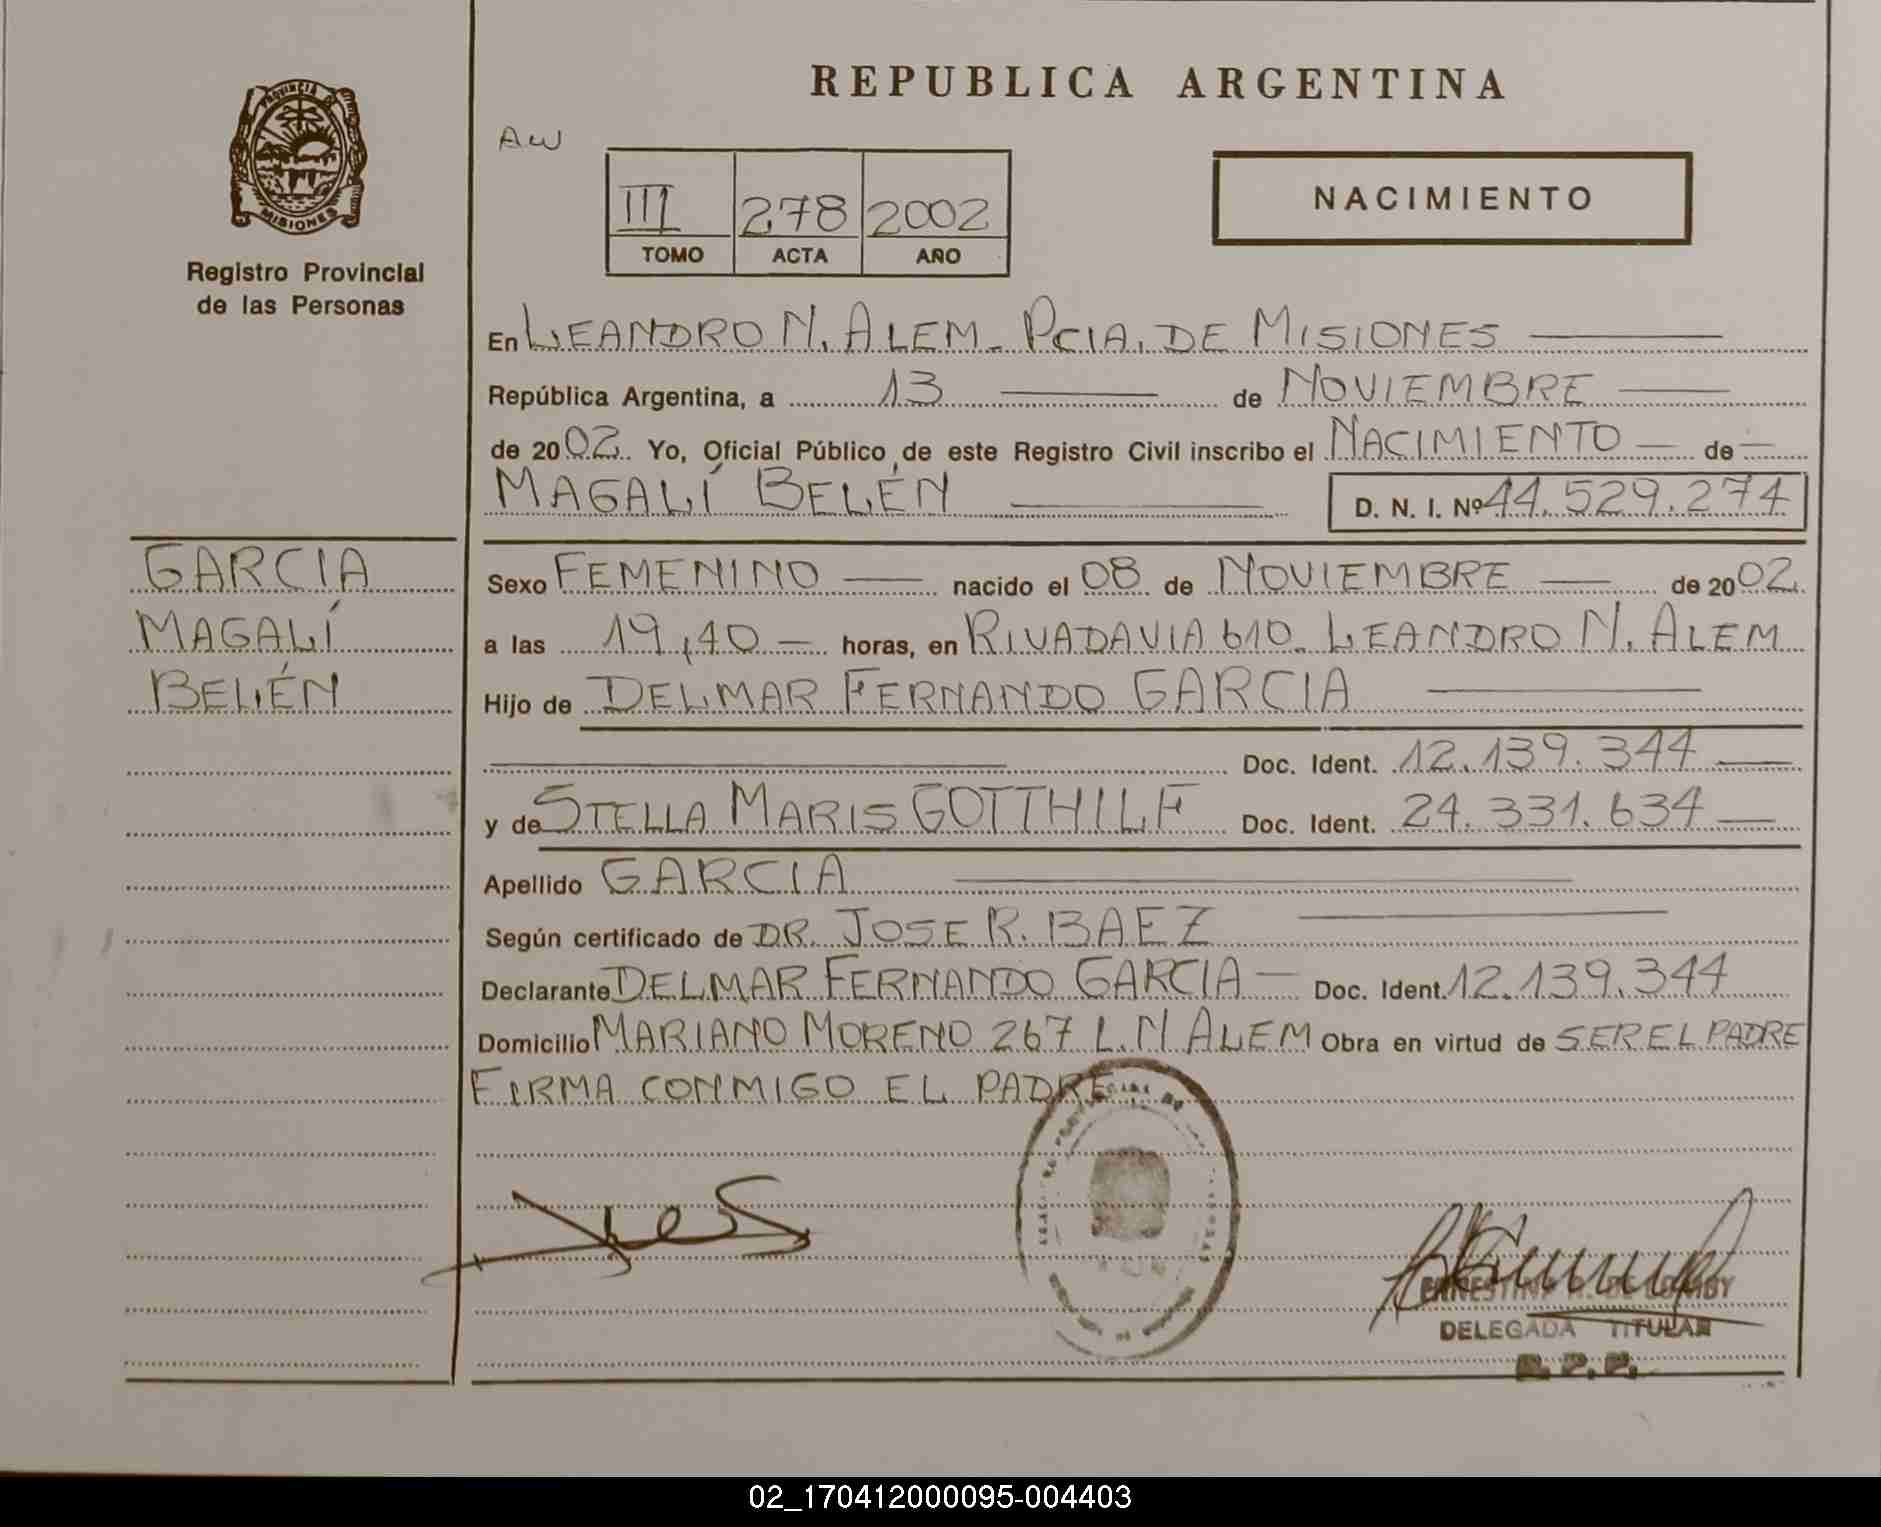 REPUBLICA ARGENTINA
AW
PROVINCIA DE
MISIONES
Registro Provincial
de las Personas
III 278 2002
TOMO ACTA AÑO
NACIMIENTO
En LEANDRO N. ALEM - PCIA. DE MISIONES
República Argentina, a 13 de NOVIEMBRE
de 2002. Yo, Oficial Público de este Registro Civil inscribo el NACIMIENTO de
MAGALÍ BELÉN D. N. I. Nº 44.529.274
GARCIA
MAGALÍ
BELÉN
Sexo FEMENINO nacido el 08 de NOVIEMBRE de 2002.
a las 19,40 horas, en RIVADAVIA 610. LEANDRO N. ALEM
Hijo de DELMAR FERNANDO GARCIA
Doc. Ident. 12.139.344
y de STELLA MARIS GOTTHILF Doc. Ident. 24.331.634
Apellido GARCIA
Según certificado de DR. JOSE R. BAEZ
Declarante DELMAR FERNANDO GARCIA Doc. Ident. 12.139.344
Domicilio MARIANO MORENO 267 L.N. ALEM Obra en virtud de SER EL PADRE
FIRMA CONMIGO EL PADRE
DELEGADA TITULAR
R. P. P.
02_170412000095-004403